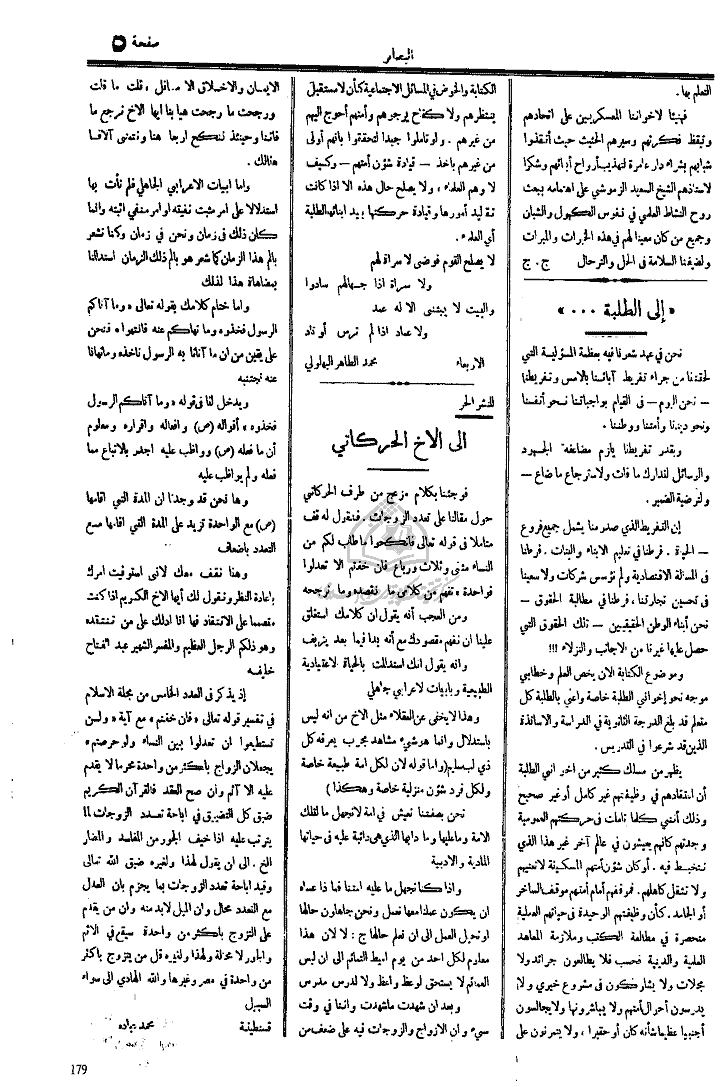 صفحة ٥
البصائر
التعلم بها.
فهنيئا لاخواننا المعسكريين على اتحادهم
وتيقظ فكرتهم وسيرهم الحثيث حيث أنقذوا
شبابهم بشراء دار عامرة لتهذيب أرواح أبنائهم وشكرا
لاستاذهم الشيخ السعيد الزموشي على اهتمامه ببعث
روح النشاط العلمي في نفوس الكهول والشبان
وجميع من كان معينا لهم في هذه الخيرات والمبرات
ولضيفنا السلامة في الحل والترحال ج . ج
«إلى الطلبة ...»
نحن في عهد شعرنا فيه بعظمة المسؤولية التي
لحقتنا من جراء تفريط آبائنا بالامس وتفريطنا
— نحن اليوم — في القيام بواجباتنا نحو أنفسنا
ونحو ديننا وأمتنا ووطننا .
وبقدر تفريطنا يلزم مضاعفة المجهود
والرسائل لندارك ما فات ولاسترجاع ما ضاع —
ولترضية الضمير .
إن التفريط الذي صدر منا يشمل جميع فروع
— الحياة . فرطنا في تعليم الابناء والبنات . فرطنا
في المسألة الاقتصادية ولم نؤسس شركات ولا سعينا
في تحسين تجارتنا ، فرطنا في مطالبة الحقوق —
نحن أبناء الوطن الحقيقيين — تلك الحقوق التي
حصل عليها غيرنا من الاجانب والنزلاء !!
وموضوع الكتابة الان يخص العلم وخطابي
موجه نحو إخواني الطلبة خاصة واعني بالطلبة كل
متعلم قد بلغ الدرجة الثانوية في الدراسة والاساتذة
الذين قد شرعوا في التدريس .
يظهر من مسلك كثير من اخواني الطلبة
أن اعتقادهم في وظيفتهم غير كامل أو غير صحيح
وذلك أنني كلما تأملت في حركتهم العمومية
وجدتهم كأنهم يعيشون في عالم آخر غير هذا الذي
نتخبط فيه . أو كأن شؤون أمتهم المسكينة لا تعنيهم
ولا تشغل كاهلهم . فموقفهم أمام أمتهم موقف الساخر
أو الجامد . كأن وظيفتهم الوحيدة في حياتهم العملية
منحصرة في مطالعة الكتب وملازمة المعاهد
العلمية والدينية فحسب فلا يطالعون جرائد ولا
مجلات ولا يشاركون في مشروع خيري ولا
يدرسون أحوال أمتهم ولا يباشرونها ولا يجالسون
أجنبيا عظيما شأنه كان أو حقيرا ، ولا يتمرنون على
الكتابة والخوض في المسائل الاجتماعية كأن لا مستقبل
ينتظرهم ولا كفاح يرجوهم وأمتهم أحوج اليهم
من غيرهم . ولو تأملوا جيدا لتحققوا بأنهم أولى
من غيرهم بأخذ — قيادة شؤون أمتهم — وكيف
لا وهم العلماء ، ولا يصلح حال هذه الا اذا كانت
تقاليد أمورها وقيادة حركتها بيد ابنائها الطلبة
أي العلماء .
لا يصلح القوم فوضى لا سراة لهم
ولا سراة اذا جهالهم سادوا
والبيت لا يبتنى الا له عمد
ولا عماد اذا لم ترس أوتاد
الاربعاء محمد الطاهر البهلولي
للنشر الحر
الى الاخ الحركاتي
فوجئنا بكلام مزعج من طرف الحركاتي
حول مقالنا على تعدد الزوجات . فنقول له قف
متأملا في قوله تعالى فانكحوا ما طاب لكم من
النساء مثنى وثلاث ورباع فان خفتم الا تعدلوا
فواحدة » تفهم من كلامي ما نقصده وما نرجحه
ومن العجب أنه يقول ان كلامك استغلق
علينا ان نفهم مقصودك مع أنه بدا فيما بعد يزيف
وانه يقول انك استدللت بالحياة لاعتيادية
الطبيعية وبابيات لاعرابي جاهلي
وهذا لا يخفى عن العقلاء مثل الاخ من انه ليس
باستدلال وانما هو شيء مشاهد مجرب يعرفه كل
ذي لب سليم (اما قوله لان لكل امة طبيعة خاصة
ولكل فرد شؤون منزلية خاصة وهكذا)
نحن بصفتنا نعيش في امة لا نجهل ما لتلك
الامة وما عليها وما دابها الذي هي دائبة عليه في حياتها
المادية والادبية
واذا كنا نجهل ما عليه امتنا فما ذا عساه
ان يكون عملنا معها نعمل ونحن جاهلون حالها
او نحول العمل الى ان نعلم حالها ج : لا لان هذا
معلوم لكل احد من يوم اميط التمائم الى ان لبس
العمائم لا يستحق لوعظ واعظ ولا لدرس مدرس
وبعد ان شهدت ما شهدت واننا في وقت
سيء وان الازواج والزوجات فيه على ضعف من
الايمان والاخلاق الا ما قل ، قلت ما قلت
ورجحت ما رجحت هيا بنا ايها الاخ نرجع ما
فاتنا وحينئذ ننكح اربعا هنا ونتمنى آلافا
هنالك .
واما ابيات الاعرابي الجاهلي فلم نأت بها
استدلالا على امر مثبت نفيته او امر منفي اثبته وانما
كان ذلك في زمان ونحن في زمان وكنا نشعر
بالم هذا الزمان كما شعر هو بالم ذلك الزمان استدللنا
بمضاهاة هذا لذلك
واما ختام كلامك بقوله تعالى « وما آتاكم
الرسول فخذوه وما نهاكم عنه فانتهوا » فنحن
على يقين من ان ما آتانا به الرسول ناخذه وما نهانا
عنه نجتنبه
ويدخل لنا في قوله « وما آتاكم الرسول
فخذوه » أقواله (ص) وافعاله واقراره ومعلوم
أن ما فعله (ص) وواظب عليه اجدر بالاتباع مما
فعله ولم يواظب عليه
وها نحن قد وجدنا ان المدة التي اقامها
(ص) مع الواحدة تزيد على المدة التي اقامها مع
التعدد باضعاف
وهنا نقف معك لانى استوفيت امرك
باعادة النظر ونقول لك أيها الاخ الكريم اذا كنت
مصمما على الانتقاد فها انا ادلك على من تنتقده
وهو ذلكم الرجل العظيم والمفسر الشهير عبد الفتاح
خليفه
إذ يذكر في العدد الخامس من مجلة الاسلام
في تفسير قوله تعالى « فان خفتم » مع آية « ولن
تستطيعوا ان تعدلوا بين النساء ولو حرصتم »
يجعلان الزواج بأكثر من واحدة محرما لا يقدم
عليه الا آثم وان صح العقد فالقرآن الكريم
ضيق كل التضييق في اباحة تعدد الزوجات لما
يترتب عليه اذا خيف الجور من المفاسد والمضار
الخ . الى ان يقول لهذا ولغيره ضيق الله تعالى
وقيد اباحة تعدد الزوجات بما يجزم بان العدل
مع التعدد محال وان الميل لابد منه وان من يقدم
على التزوج بأكثر من واحدة سيقع في الاثم
والجور لا محالة ولهذا ولغيره قل من يتزوج باكثر
من واحدة في مصر وغيرها والله الهادي الى سواء
السبيل
قسنطينة محمد
179